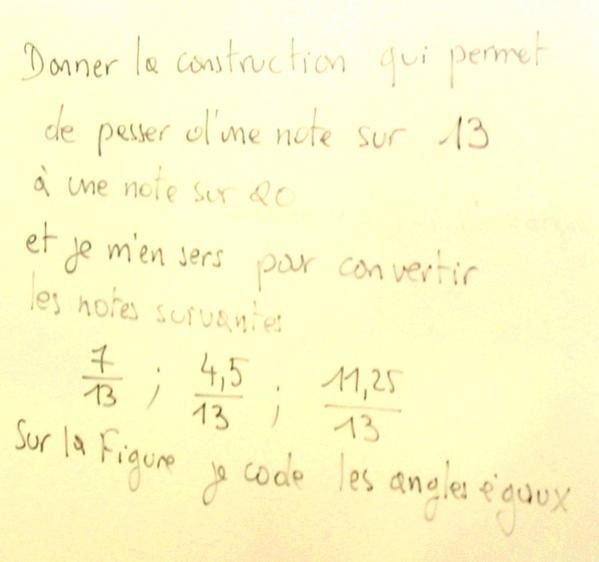 Donner la construction qui permet
de passer d'une note sur 13
à une note sur 20
et je m'en sers pour convertir
les notes suivantes
7/13 ; 4,5/13 ; 11,25/13
Sur la Figure je code les angles égaux